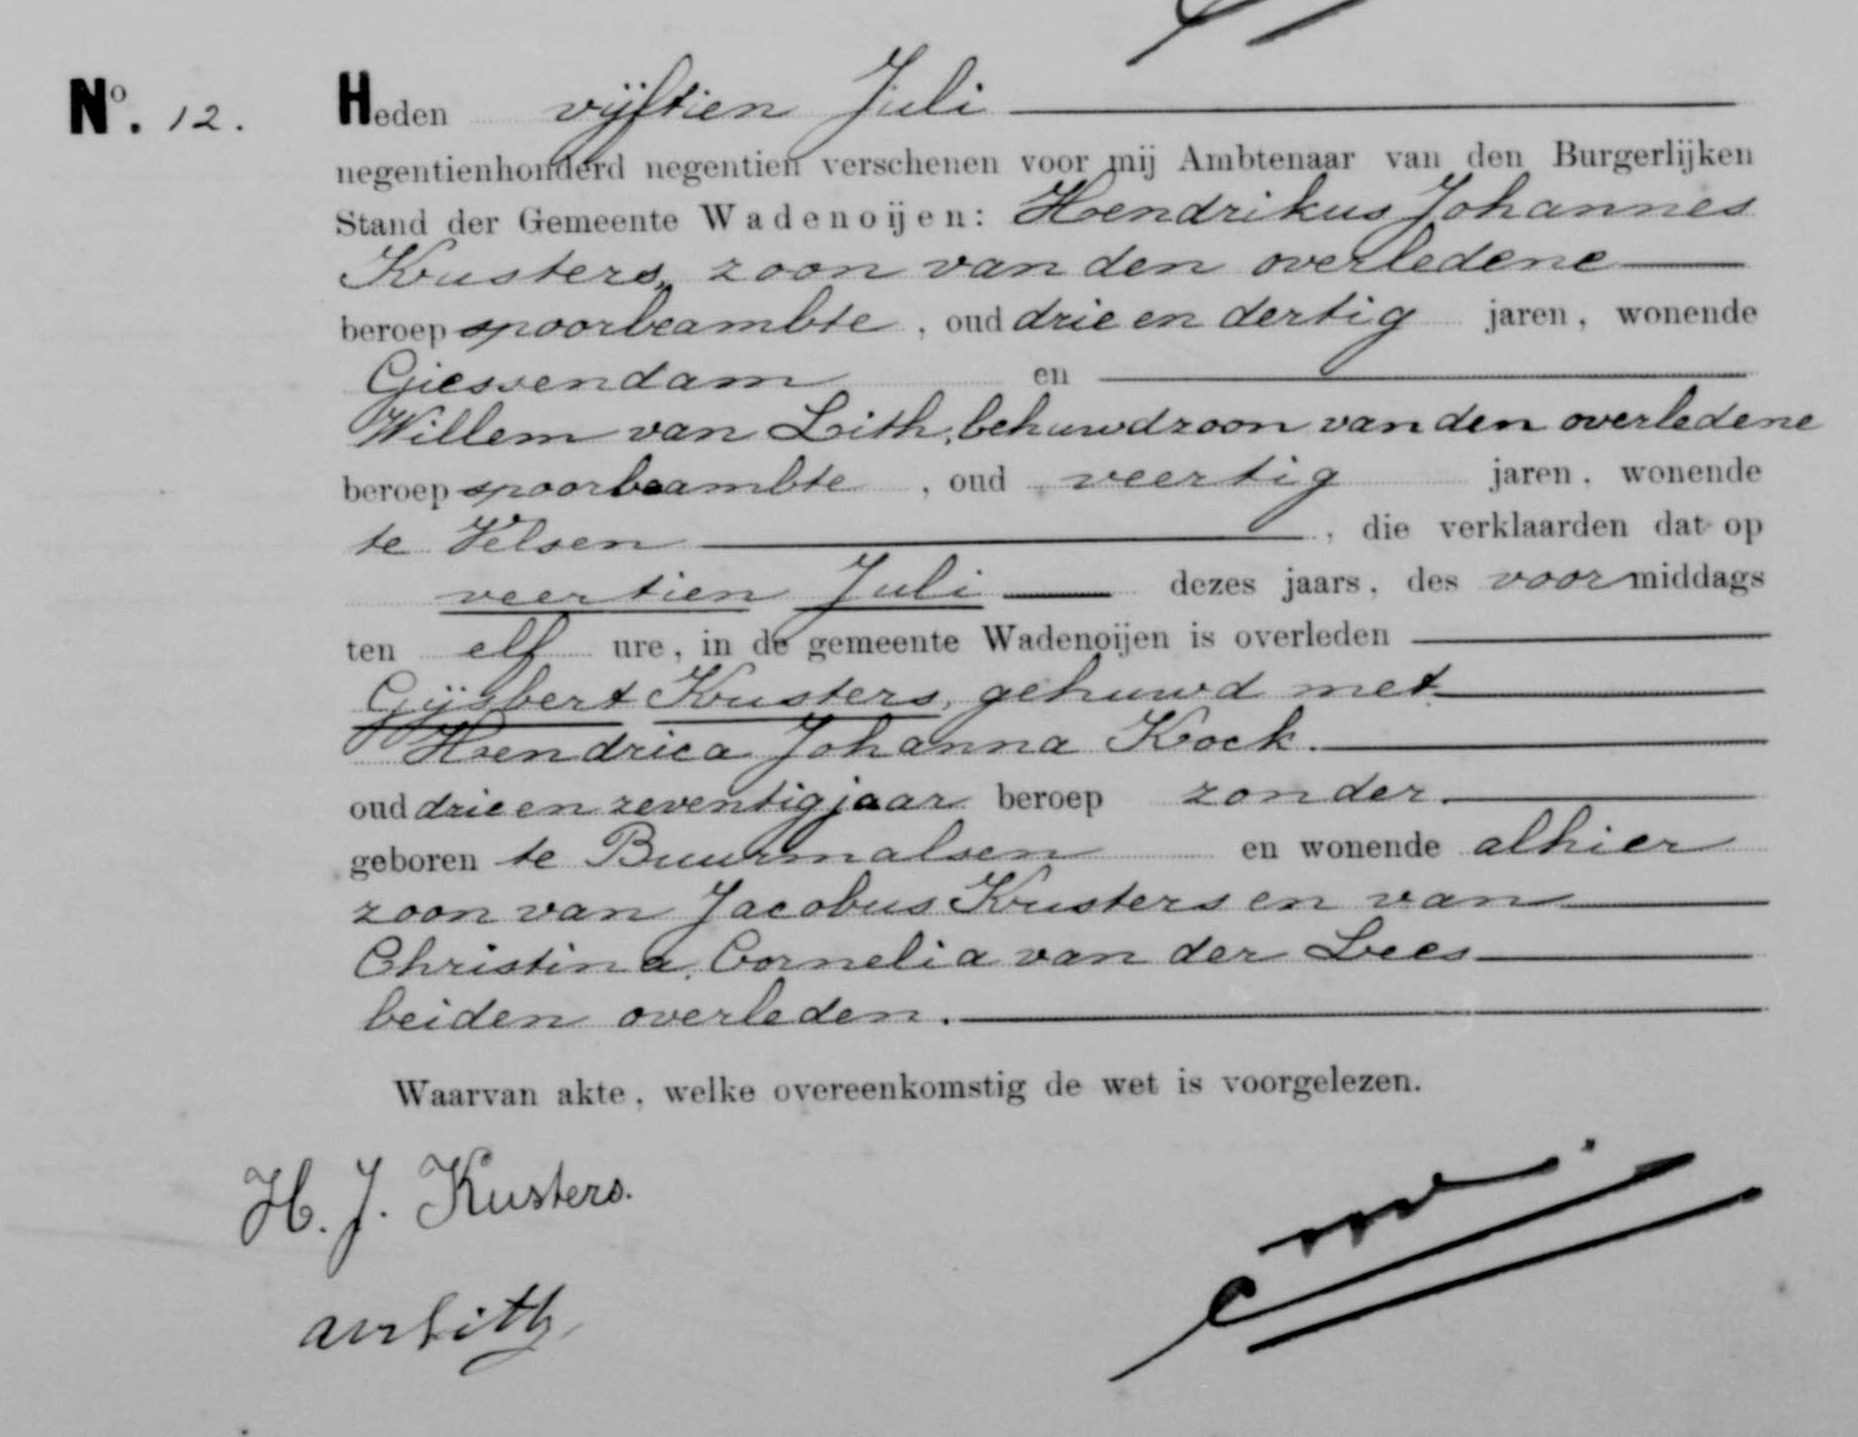 No. 12.
Heden vijftien Juli
negentienhonderd negentien verschenen voor mij Ambtenaar van den Burgerlijken
Stand der Gemeente Wadenoijen: Hendrikus Johannes
Kusters, zoon van den overledene
beroep spoorbeambte, oud drie en dertig jaren, wonende
Giessendam en
Willem van Lith, behuwdzoon van den overledene
beroep spoorbeambte, oud veertig jaren, wonende
te Velsen, die verklaarden dat op
veertien Juli dezes jaars, des voormiddags
ten elf ure, in de gemeente Wadenoijen is overleden
Gijsbert Kusters, gehuwd met
Hendrica Johanna Kock.
oud drie en zeventig jaar beroep zonder.
geboren te Buurmalsen en wonende alhier
zoon van Jacobus Kusters en van
Christina Cornelia van der Lees
beiden overleden.
Waarvan akte, welke overeenkomstig de wet is voorgelezen.
H. J. Kusters.